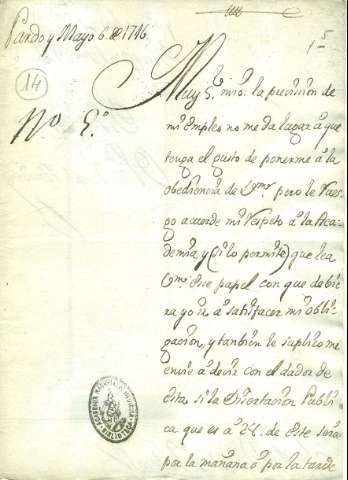 1746
Pardo y Mayo 6. de 1746.
14
Nº 5.º
1
Muy S.r mio: la precission de
mi Empleo no me da lugar à que
tenga el gusto de ponerme à la
obediencia de Vmd. pero le rue
go acuerde mi respeto à la Aca
demia, y (si lo permite) que lea
Vmd. este papel con que debie
ra yo ir à satisfacer mi obli
gacion, y tambien le suplico me
envie à decir con el dador de
esta si la Disertacion Publi
ca que es à 22. de este sera
por la mañana ò por la tarde
BIBLIOTECA